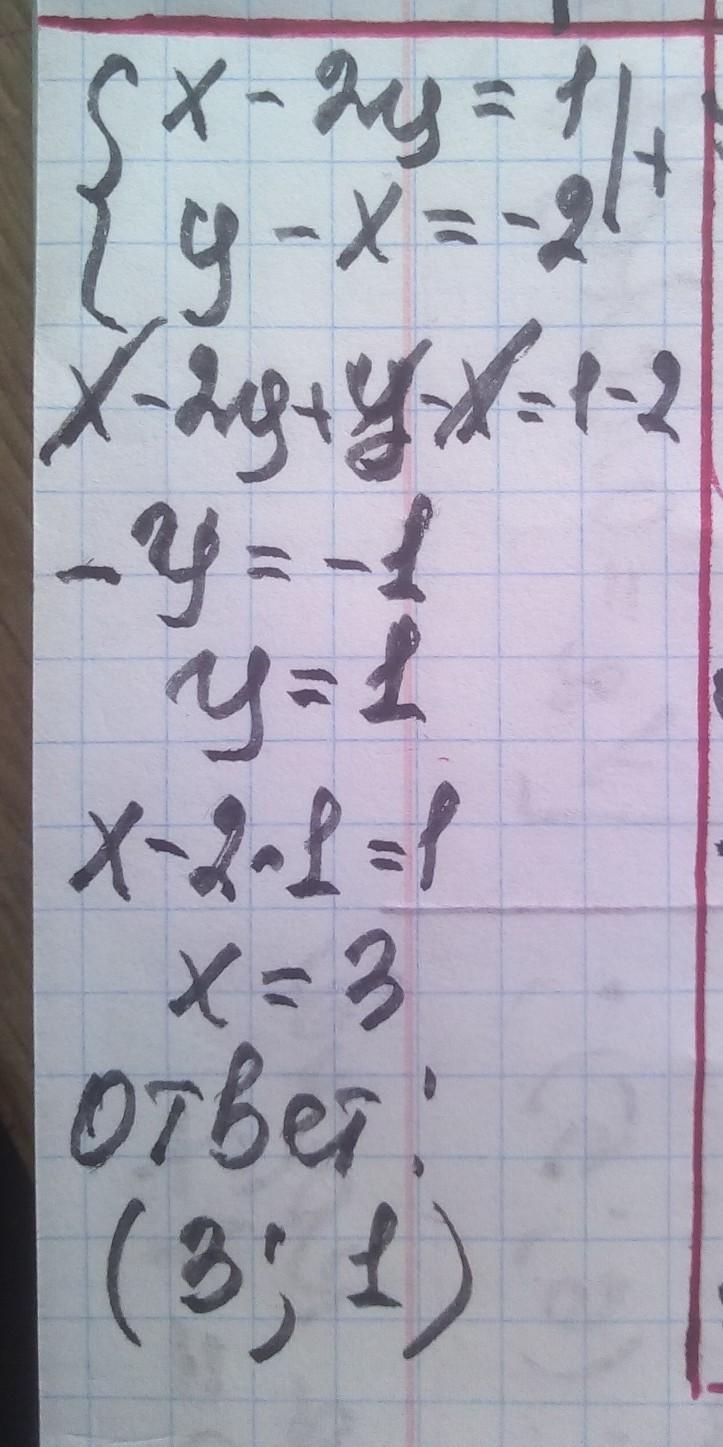 { x - 2y = 1 | +
y - x = -2
x - 2y + y - x = 1 - 2
- y = - 1
y = 1
x - 2 · 1 = 1
x = 3
ответ:
(3; 1)